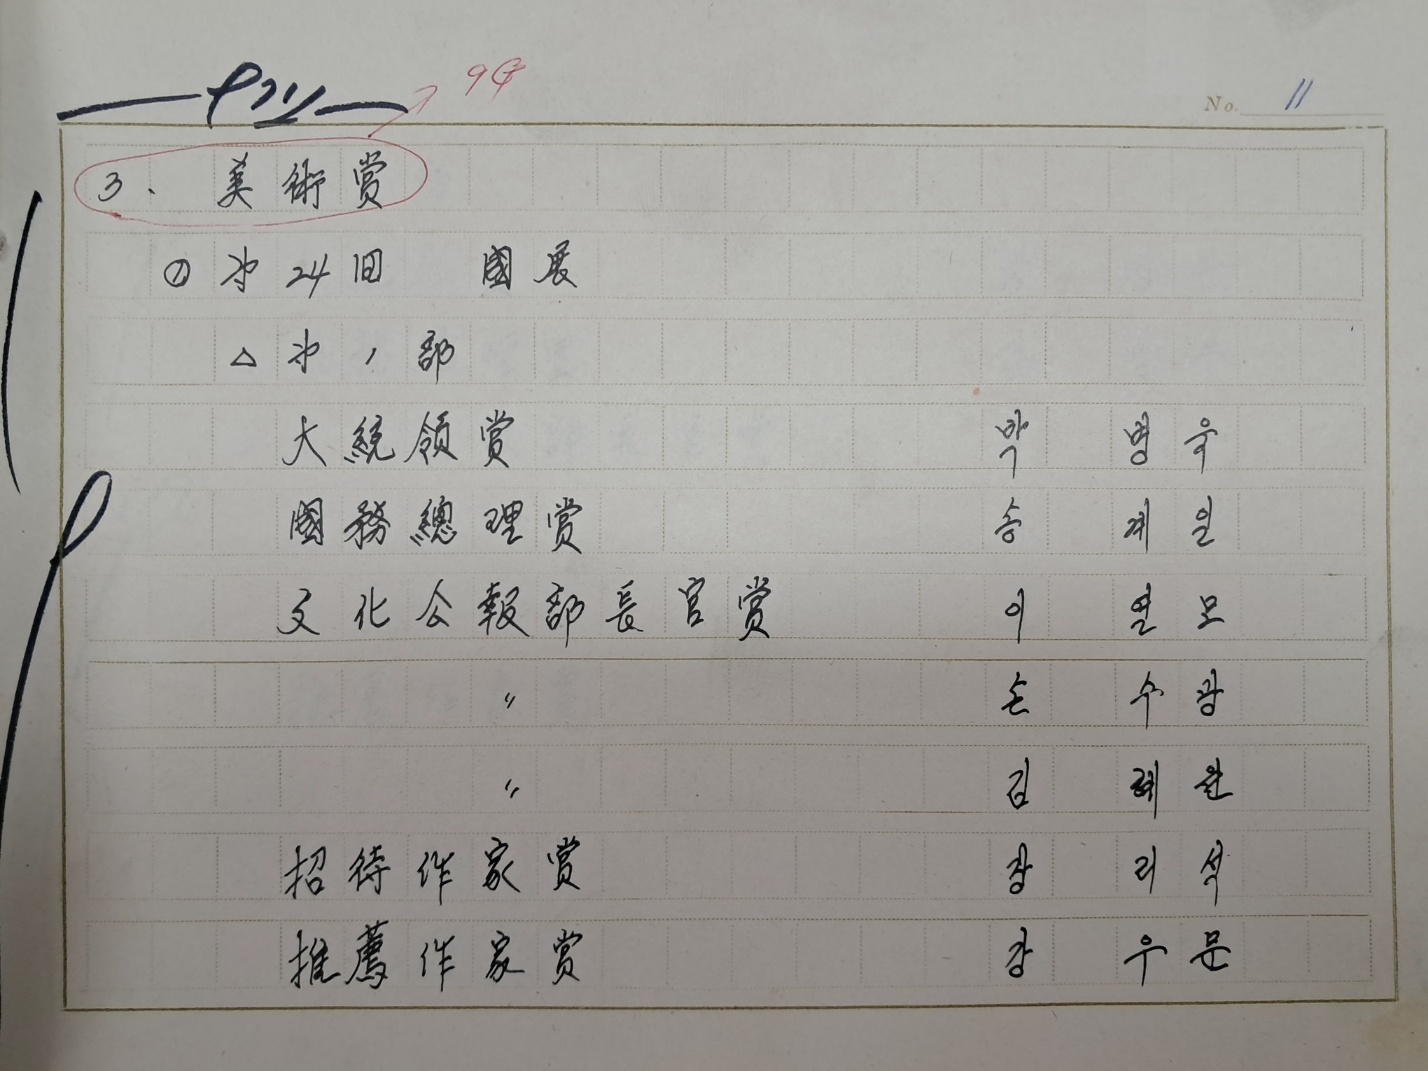 9G
No. 11
3. 美術賞
① 第24回 國展
△ 第1部
大統領賞 박 명욱
國務總理賞 송 계일
文化公報部長官賞 이 열모
〃 손 수광
〃 김 혜원
招待作家賞 장 리석
推薦作家賞 강 우문